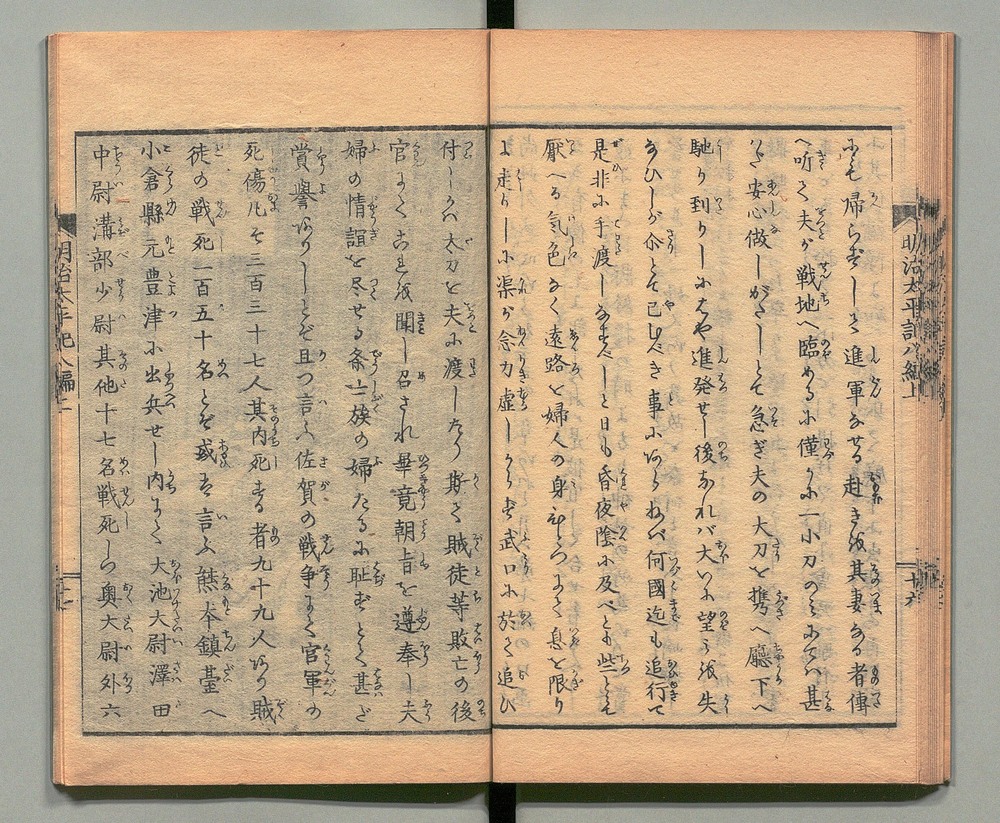 にも帰らずしを進軍なせる赴き從其妻なる者傳
へ听て夫が戦地へ臨めるに僅かに一小刀のみにては甚
だ安心做しがたしとて急ぎ夫の大刀を携へ廳下へ
馳り到りしにはや進発せし後なれバ大いに望を失
なひしが尒とて已むべき事にあらねべ何國迄も追行て
是非に手度しなすべしと日も昏夜陰に及べとも些しも
厭へる気色なく遠路を婦人の身ひとつにて息を限り
に走りしに渠が念力虚しからず武口に於て追ひ
付しかバ太刀を夫に渡したり斯て賊徒等敗亡の後
官にてこれを聞し召され畢竟朝旨を遵奉し夫
婦の情誼を尽せる条士族の婦たるに耻ずとて甚ど
賞譽ありしとぞ且つ言ふ佐賀の戦争にて官軍の
死傷凡そ三百三十七人其内死する者九十九人あり賊
徒の戦死一百五十名とぞ或は言ふ熊本鎮臺へ
小倉縣元豊津に出兵せし内にて大池大尉澤田
中尉溝部少尉其他十七名戦死しら奥大尉外六
明治太平記八編上
十六
明治太平記八編上